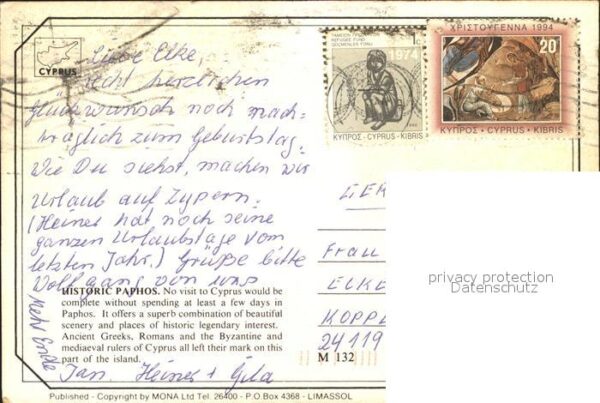 CYPRUS
ΤΑΜΕΙΟΝ ΠΡΟΣΦΥΓΩΝ
REFUGEE FUND
GÖÇMENLER FONU
1c
1974
ΚΥΠΡΟΣ - CYPRUS - KIBRIS
ΧΡΙΣΤΟΥΓΕΝΝΑ 1994
20
ΚΥΠΡΟΣ · CYPRUS · KIBRIS
Liebe Elke,
recht herzlichen
Glückwunsch noch nach-
träglich zum Geburtstag.
Wie Du siehst, machen wir
Urlaub auf Zypern.
(Heiner hat noch seine
ganzen Urlaubstage vom
letzten Jahr.) Grüße bitte
Wolfgang von uns
Mehr Ende
Jan. Heiner + Gila
GER
Frau
ELKE
KOPPE
24119
privacy protection
Datenschutz
HISTORIC PAPHOS. No visit to Cyprus would be
complete without spending at least a few days in
Paphos. It offers a superb combination of beautiful
scenery and places of historic legendary interest.
Ancient Greeks, Romans and the Byzantine and
mediaeval rulers of Cyprus all left their mark on this
part of the island.
M 132
Published - Copyright by MONA Ltd Tel. 26400 - P.O BOX 4368 - LIMASSOL